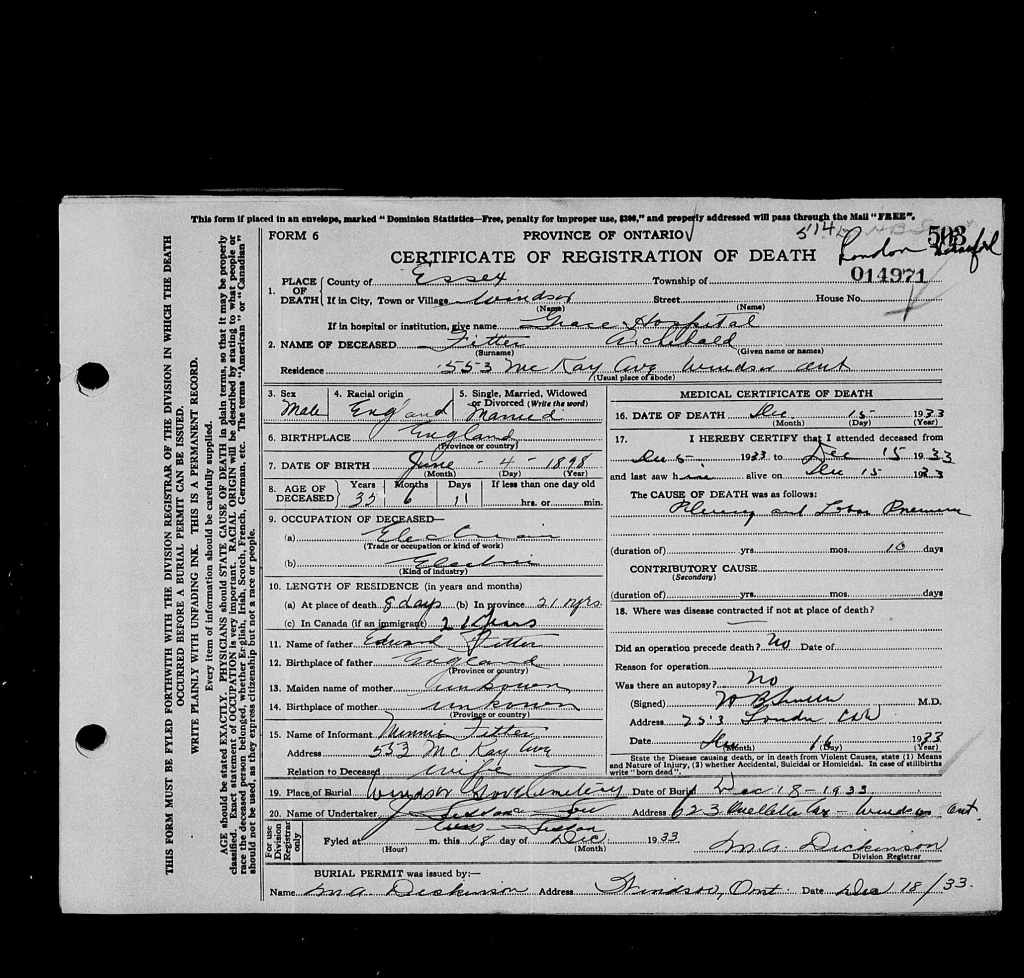 This form if placed in an envelope, marked "Dominion Statistics—Free, penalty for improper use, $300," and properly addressed will pass through the Mail "FREE".
THIS FORM MUST BE FYLED FORTHWITH WITH THE DIVISION REGISTRAR OF THE DIVISION IN WHICH THE DEATH
OCCURRED BEFORE A BURIAL PERMIT CAN BE ISSUED.
WRITE PLAINLY WITH UNFADING INK. THIS IS A PERMANENT RECORD.
Every item of information should be carefully supplied.
AGE should be stated EXACTLY. PHYSICIANS should STATE CAUSE OF DEATH in plain terms, so that it may be properly
classified. Exact statement of OCCUPATION is very important. RACIAL ORIGIN will be described by stating to what people or
race the deceased person belonged, whether English, Irish, Scotch, French, German, etc. The terms "American" or "Canadian"
should not be used, as they express citizenship but not a race or people.
FORM 6 PROVINCE OF ONTARIO 503
CERTIFICATE OF REGISTRATION OF DEATH London
014971
1. PLACE OF DEATH County of Essex Township of
If in City, Town or Village Windsor Street House No.
(Name) (Name)
If in hospital or institution, give name Grace Hospital
2. NAME OF DECEASED Fitter Archibald
(Surname) (Given name or names)
Residence 553 Mc Kay Ave Windsor Ont
(Usual place of abode)
3. Sex Male 4. Racial origin England 5. Single, Married, Widowed or Divorced (Write the word) Married
6. BIRTHPLACE England
(Province or country)
7. DATE OF BIRTH June - 4 - 1898
(Month) (Day) (Year)
8. AGE OF DECEASED Years 35 Months 6 Days 11 If less than one day old
hrs. or min.
9. OCCUPATION OF DECEASED—
(a) Electrician
(Trade or occupation or kind of work)
(b) Electric
(Kind of industry)
10. LENGTH OF RESIDENCE (in years and months)
(a) At place of death 8 days (b) In province 21 yrs
(c) In Canada (if an immigrant) 21 years
11. Name of father Edward Fitter
12. Birthplace of father England
(Province or country)
13. Maiden name of mother unknown
14. Birthplace of mother unknown
(Province or country)
15. Name of Informant Minnie Fitter
Address 553 Mc Kay Ave
Relation to Deceased wife
MEDICAL CERTIFICATE OF DEATH
16. DATE OF DEATH Dec 15 1933
(Month) (Day) (Year)
17. I HEREBY CERTIFY that I attended deceased from
Dec 5 1933 to Dec 15 1933
and last saw him alive on Dec 15 1933
The CAUSE OF DEATH was as follows:
Pleurisy and Lobar Pneumonia
(duration of) yrs. mos. 10 days
CONTRIBUTORY CAUSE
(Secondary)
(duration of) yrs. mos. days
18. Where was disease contracted if not at place of death?
Did an operation precede death? No Date of
Reason for operation
Was there an autopsy? No
(Signed) M.D.
Address London
Date Dec 16 1933
(Month) (Day) (Year)
State the Disease causing death, or in death from Violent Causes, state (1) Means
and Nature of Injury, (2) whether Accidental, Suicidal or Homicidal. In case of stillbirths
write "born dead".
19. Place of Burial Windsor Grove Cemetery Date of Burial Dec 18 - 1933
20. Name of Undertaker Address 623 Ouellette Ave - Windsor Ont.
For use Division Registrar only
Fyled at m. this 18 day of Dec 1933 M.A. Dickinson
(Hour) (Month) Division Registrar
BURIAL PERMIT was issued by:—
Name M A Dickinson Address Windsor, Ont. Date Dec 18/33.